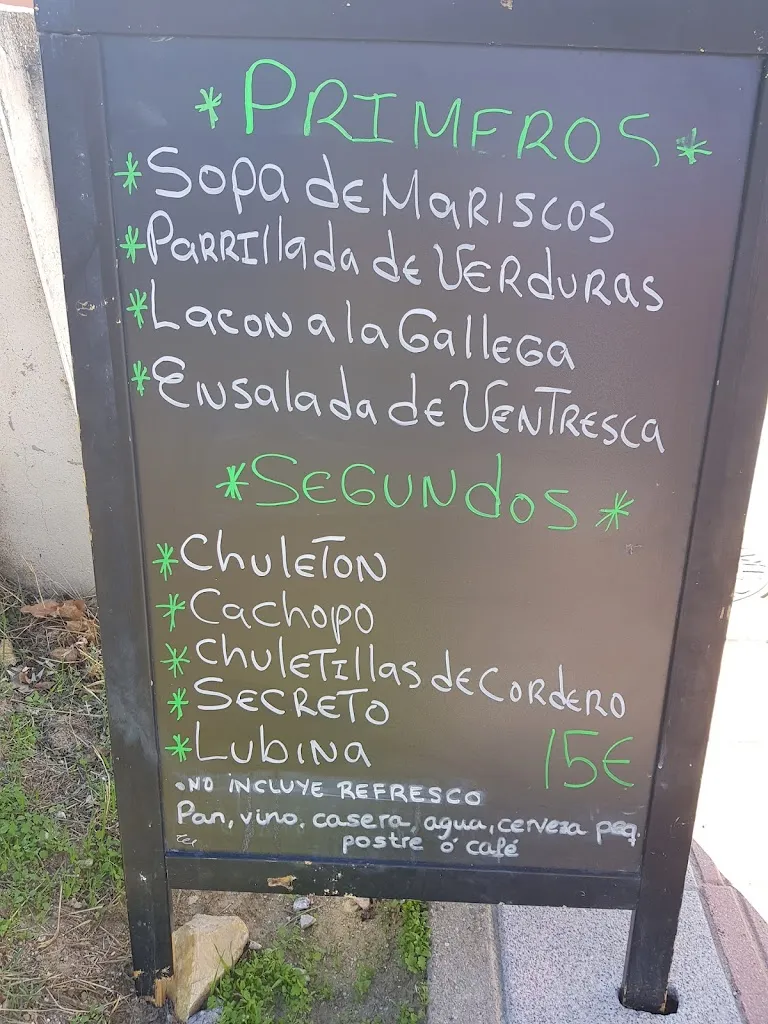 * PRIMEROS *
* Sopa de Mariscos
* Parrillada de Verduras
* Lacon a la Gallega
* Ensalada de Ventresca
* Segundos *
* Chuleton
* Cachopo
* Chuletillas de Cordero
* Secreto
* Lubina 15€
• NO INCLUYE REFRESCO
Pan, vino, casera, agua, cerveza peq.
postre ó café